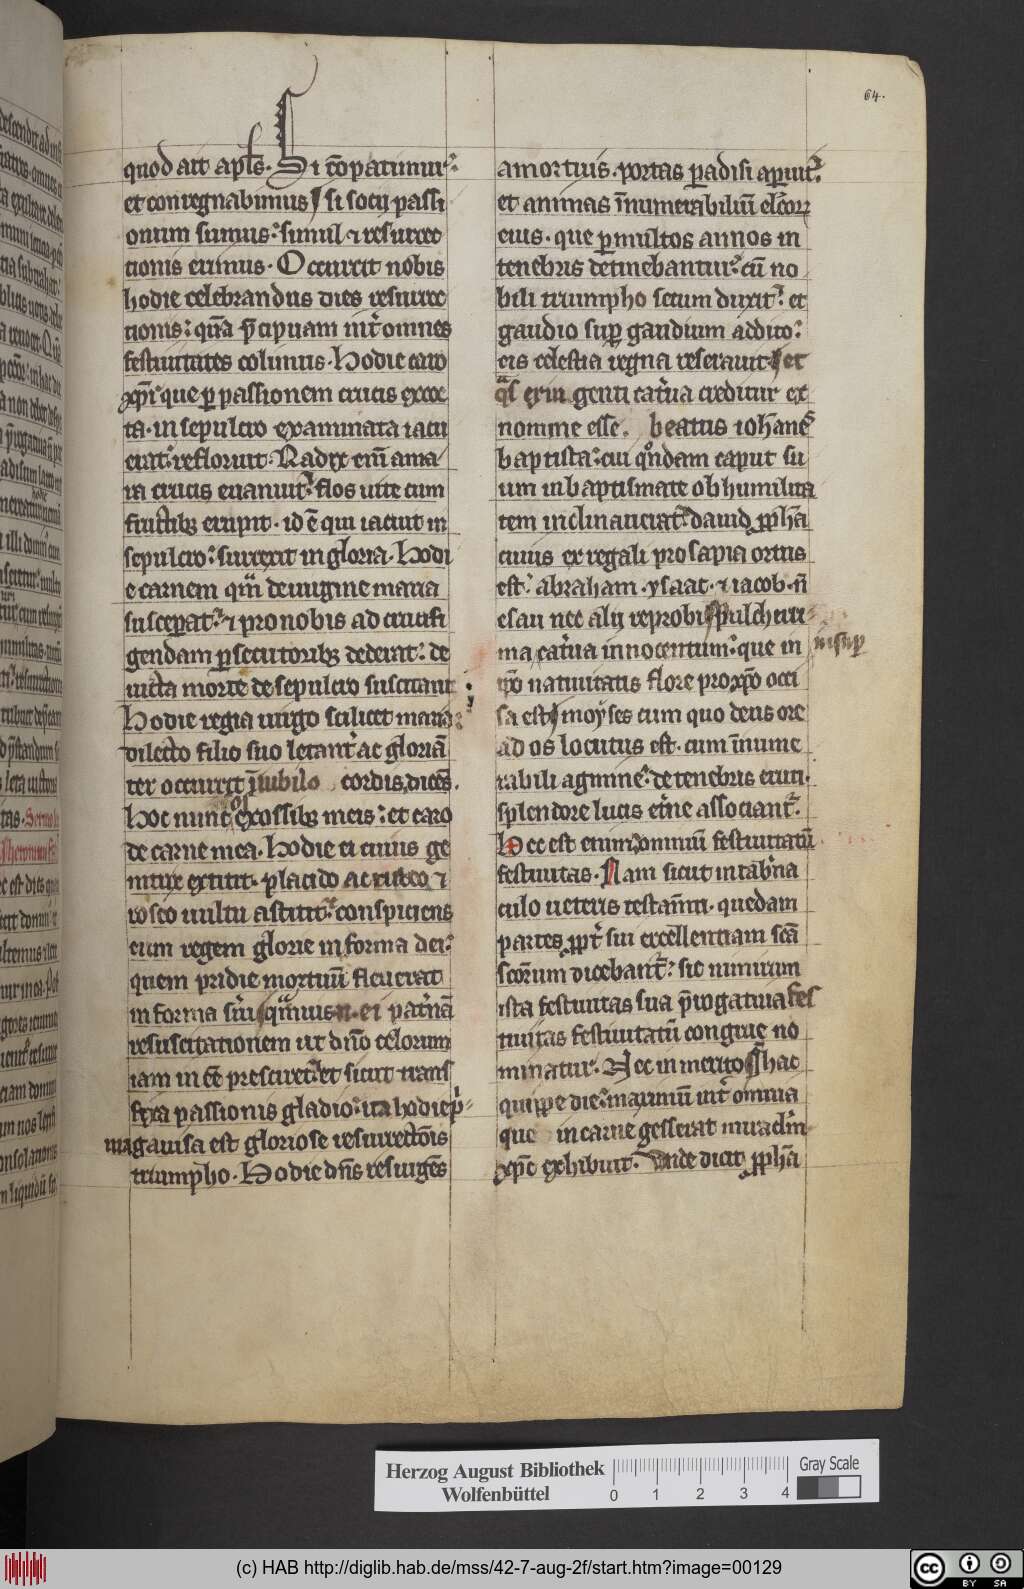 64.
quod ait apl̄s. Si c̄opatimur
et conregnabimus si socii passi
onum sumus: simul ⁊ resurrec
tionis erimus. Occurrit nobis
hodie celebrandus dies resurrec
tionis: quā p̄cipuam int̓ omnes
festiuitates colimus. Hodie caro
xp̄i que ꝑ passionem crucis exce
ta. in sepulcro examinata iacu
erat: refloruit. Radix eni͞m ama
ra crucis euanuit: flos uite cum
fructibꝫ erupit. id ē qui iacuit in
sepulcro: surrexit in gloria. Hodi
e carnem quā de uirgine maria
susceperat: ⁊ pro nobis ad crucifi
gendam ꝑsecutoribꝫ dederat: de
uicta morte de sepulcro suscitauit
Hodie regia uirgo scilicet maria
dilecto filio suo letant̓ ac glorian̄
ter occurrit ī iubilo cordis dicēs.
Hoc nunc os ex ossibꝫ meis: et caro
de carne mea. Hodie ei cuius ge
nitrix extitit. placido ac rubeo ⁊
roseo uultu astitit: conspiciens
eum regem glorie in forma dei:
quem pridie mortuū fleuerat
in forma s̓ui quāuis n. ei pat̓nā
resuscitationem ut dn̄o celorum
iam inēē presciret: et sicut trans
fixa passionis gladio: ita hodie p̓
ma gauisa est gloriose resurrectōis
triumpho. Hodie dn̄s resurgēs
a mortuis. portas ꝑadisi aperuit:
et animas īnumerabiliū elc̓torꝝ
eius. que ꝑ multos annos in
tenebris detinebantur: cū no
bili triumpho secum duxit: et
gaudio suꝑ gaudium addito:
eis celestia regna reserauit et
genti cat̓ua creditur ex
nomine esse. beatus ioh̄anes
baptista: cui qͦndam caput su
um in baptismate ob humilita
tem inclinauerat: dauid ꝓph̄a
cuius ex regali prosapia ortus
est: abraham. ysaac. ⁊ iacob. n̄
esau nec alii reprobi pulcherri
ma cat̓ua innocentum: que in
nisuꝑ
ip̄o natiuitatis flore pro xp̄o occi
sa est moyses cum quo deus ore
ad os locutus est. cum īnume
rabili agmine: de tenebris eruti.
splendore lucis et̓ne associant̓.
Hec est enim omniū festiuitatū
festiuitas. Nam sicut in tab̓na
culo ueteris testam̄ti. quedam
partes ꝓpt̓ sui excellentiam scā
scōrum dicebant̓: sic nimirum
ista festiuitas sua p̄rogatiua fes
tiuitas festiuitatū congrue no
minatur. Nec in merito hac
quippe die: maximū int̓ omnia
que in carne gesserat miraclm̄
xp̄c exhibuit. Unde dicit ꝓph̄a
Herzog August Bibliothek
Wolfenbüttel
0 1 2 3 4
Gray Scale
(c) HAB http://diglib.hab.de/mss/42-7-aug-2f/start.htm?image=00129
cc BY SA